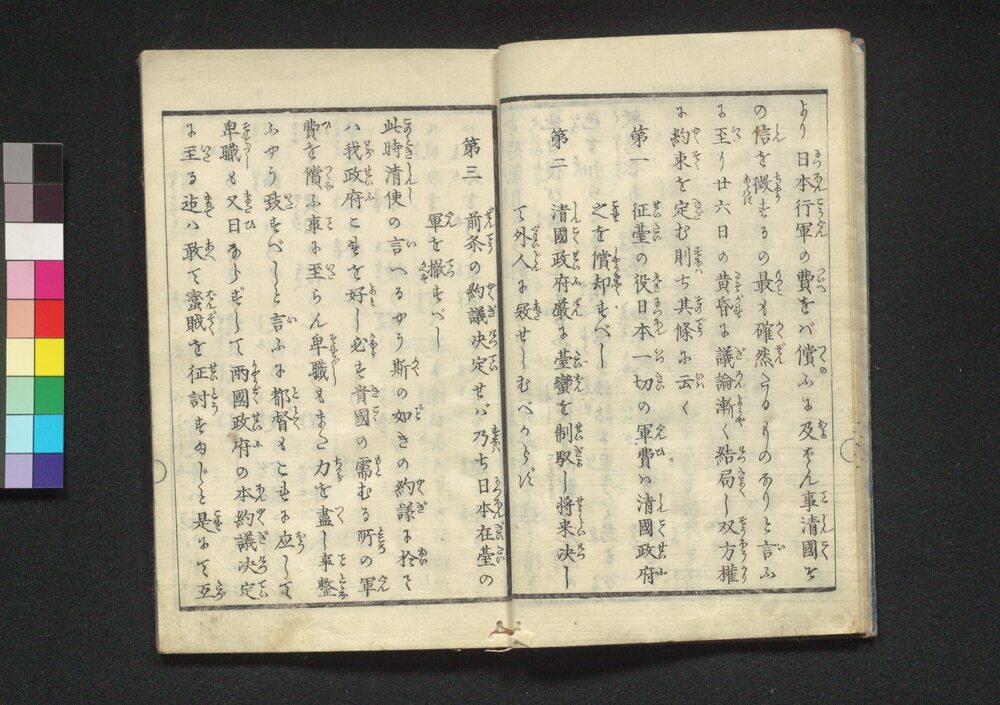 より日本行軍の費をバ償ふに及ばん事清國そ
の信を徴するの最も確然たるものなりと言ふ
に至り廿六日の黄昏に議論漸く結局し双方権
に約束を定む則ち其條に云く
第一 征臺の役日本一切の軍費ハ清國政府
之を償却すべし
第二 清國政府厳に臺蠻を制馭し将来决し
て外人に
せしむべからず
第三 前条の約議决定せバ乃ち日本在臺の
軍を撤すべし
此時清使の言へるやう斯の如きの約議に於て
ハ我政府これを好し必ず貴國の需むる所の軍
費を償ふ事に至らん卑職もまた力を盡し事整
ふやう致すべしと言ふに都督もこれに应じて
卑職も又日ならずして兩國政府の本約議决定
に至る迄ハ敢て蛮賊を征討すまじと是にて互